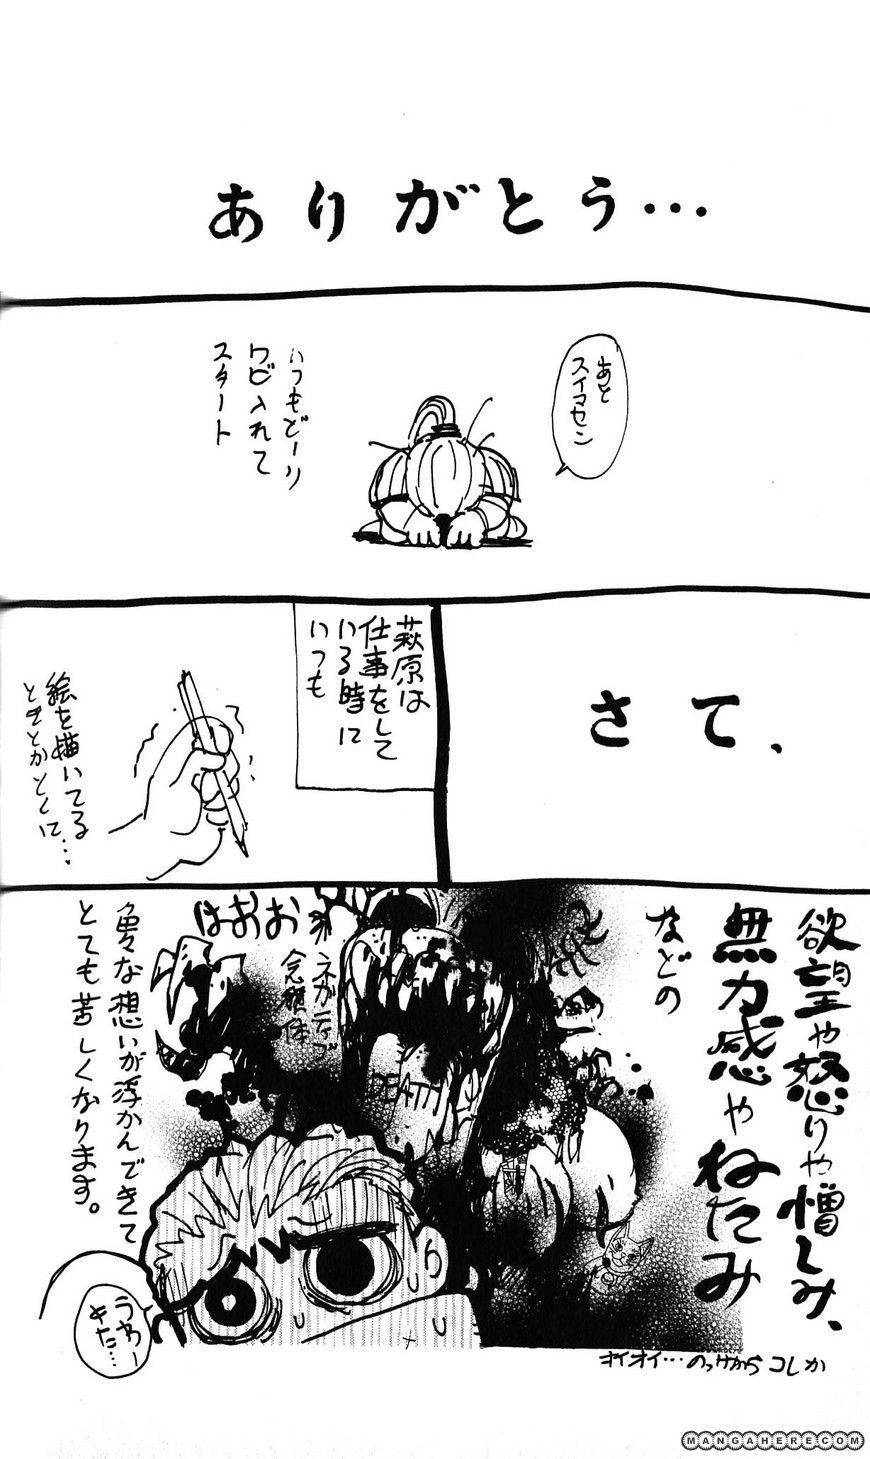 ありがとう…
あと
スイマセン
いつもどーり
ワビ入れて
スタート
さて、
萩原は
仕事をして
いる時に
いつも
絵を描いてる…
ときとかとくに
欲望や怒りや憎しみ、
無力感やねたみ
などの
ネガティブ
念願体
はおお
DEATH
色々な想いが浮かんできて
とても苦しくなります。
うわー
きた…
オイオイ…のっけからコレか
MANGAHERE.COM